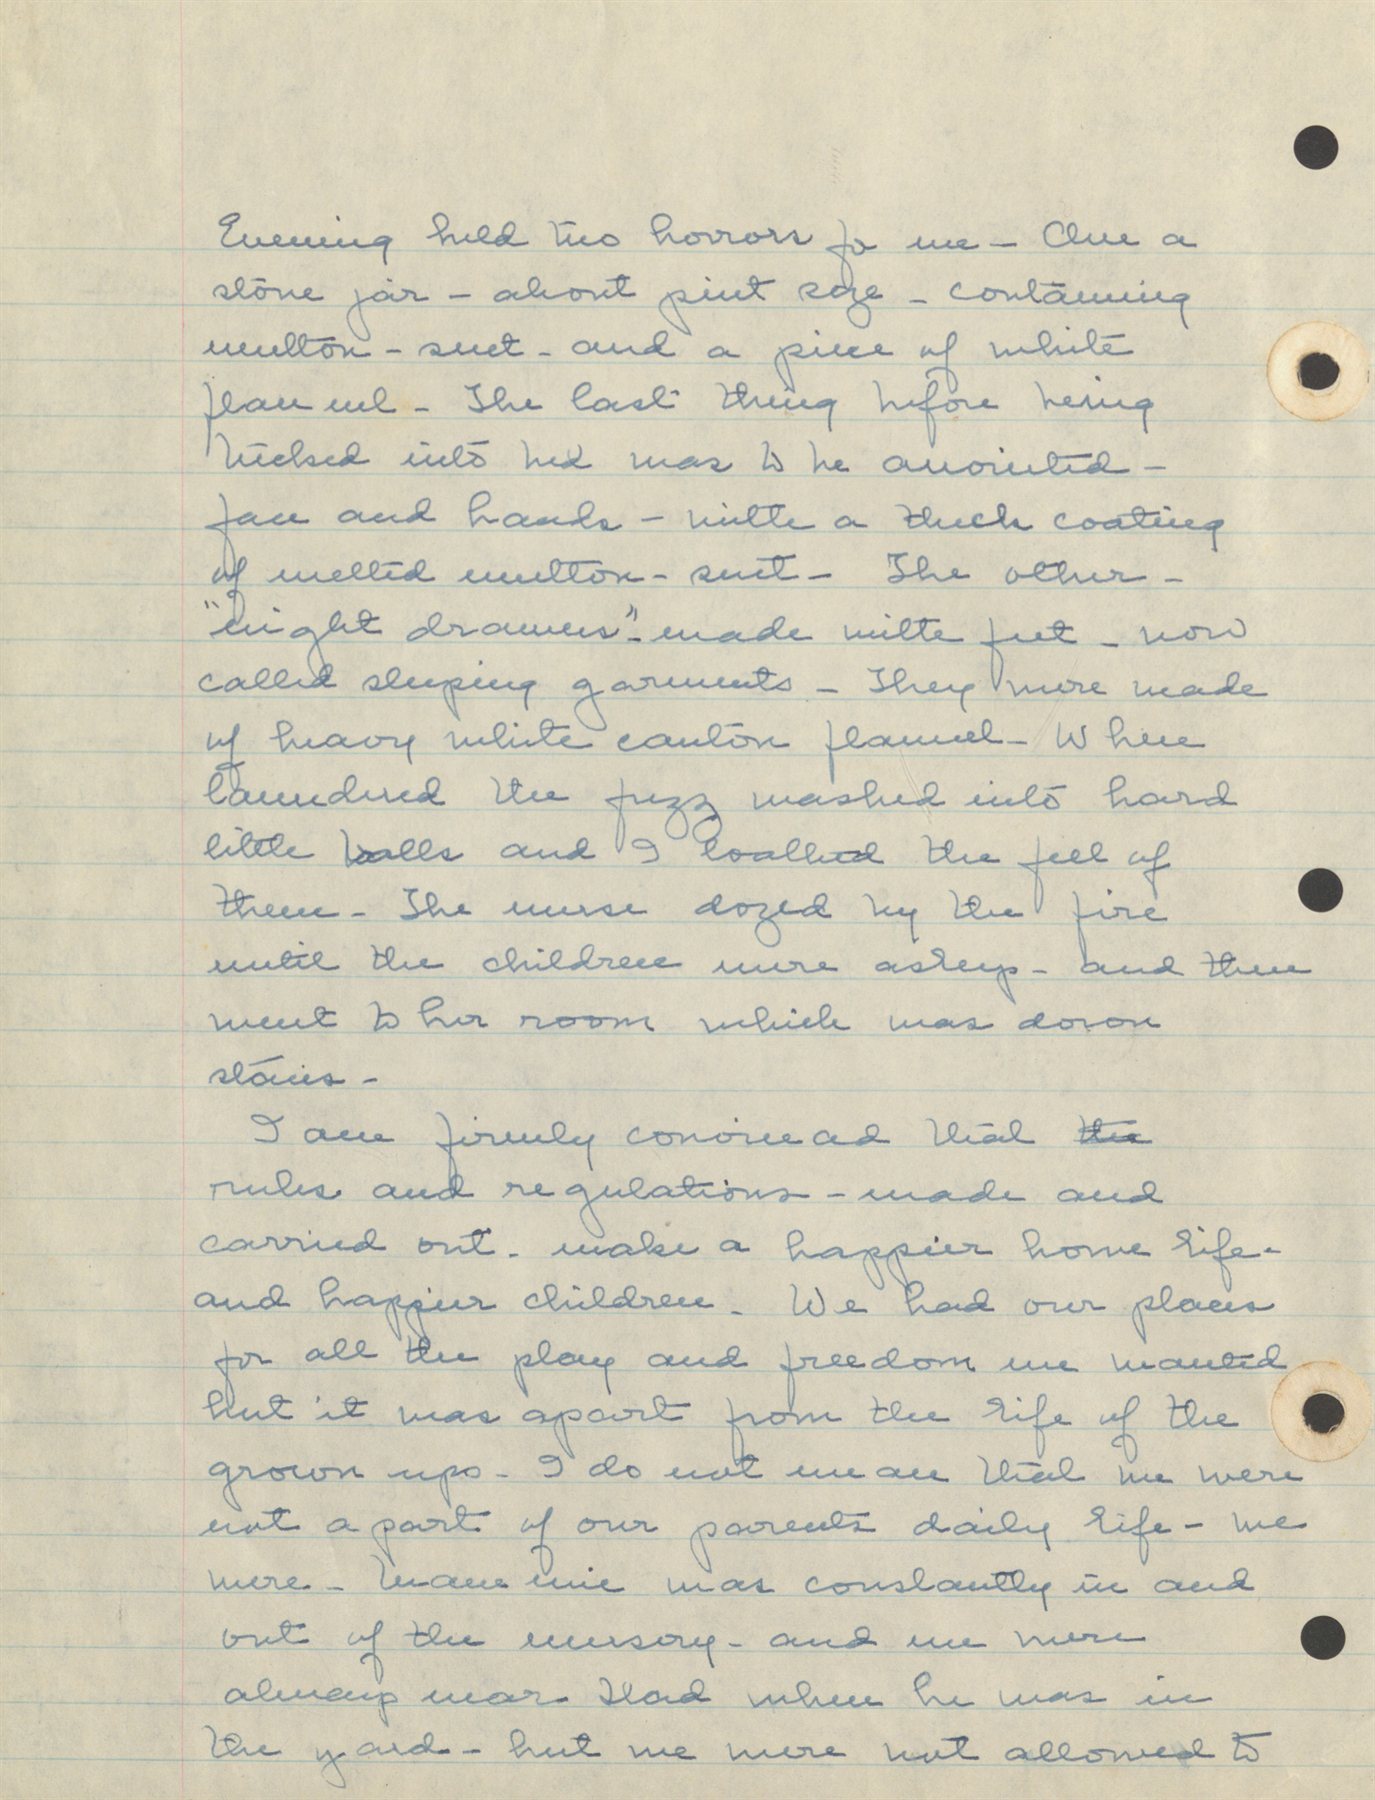 Evening held two horrors fo me - One a
stone jar - about pint size - containing
mutton - suet - and a piece of white
flannel - The last thing before being
tucked into bed was to be anointed -
face and hands - with a thick coating
of melted mutton - suet - The other -
"night drawers" - made with feet - now
called sleeping garments - They were made
of heavy white canton flannel - When
laundered the fuzz washed into hard
little balls and I loathed the feel of
them - The nurse dozed by the fire
until the children were asleep - and then
went to her room which was down
stairs -
I am firmly convinced that the
rules and regulations - made and
carried out - make a happier home life -
and happier children - We had our places
for all the play and freedom we wanted
but it was apart from the life of the
grown ups - I do not mean that we were
not a part of our parents daily life - we
were - Mammie was constantly in and
out of the nursery - and we were
always near Dad when he was in
the yard - but we were not allowed to